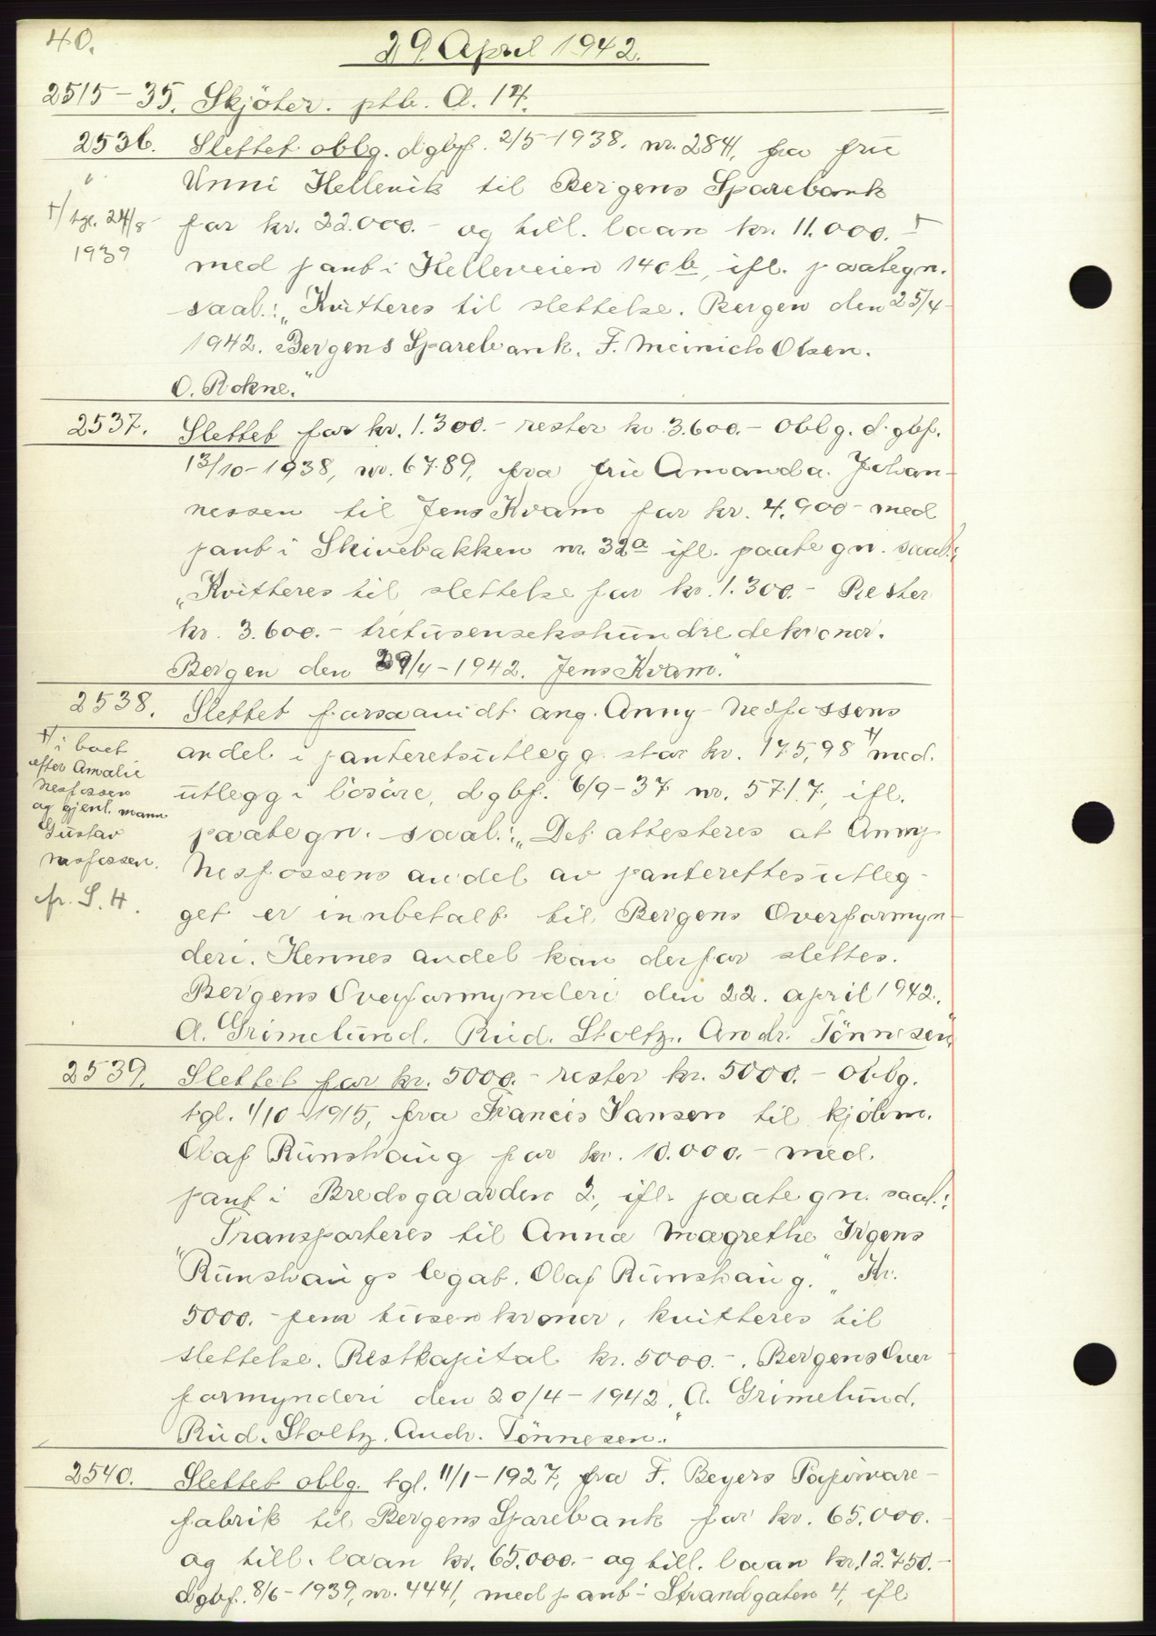 40.
29. April 1942.
2515-35. Skjöter. ptb. A. 14.
2536. Slettet oblg. dgbf. 2/5-1938. nr. 2841, fra frü
Unni Hellevik til Bergens Sparebank
+/ tgl. 24/8-
1939
for kr. 22.000.- og till. laan kr. 11.000.- +
med pant i Helleveien 140b, ifl. paategn.
saal.: „Kvitteres til slettelse. Bergen den 25/4-
1942. Bergens Sparebank. F. Meinich Olsen.
O. Rokne."
2537. Slettet for kr. 1.300.- rester kr. 3.600.- oblg. d.gbf.
13/10-1938, nr. 6789, fra frü Amanda Johan-
nessen til Jens Kvam for kr. 4.900- med
pant i Skivebakken nr. 32a ifl. paategn. saal.:
„Kvitteres til slettelse for kr. 1.300.- Rester
kr. 3.600.- tretüsensekshündredekroner.
Bergen den 29/4-1942. Jens Kvam."
2538. Slettet forsaavidt ang. Anny Nesfossens
+/ i boet
efter Amalie
Nesfossen
og gjenl. mann
Güstav
Nesfossen.
cfr. S. 4.
andel i panteretsütlegg stor kr. 175,98 +/ med
ütlegg i lösöre, dgbf. 6/9-37 nr. 5717, ifl.
paategn. saal.: „Det attesteres at Anny
Nesfossens andel av panterettesütleg-
get er innbetalt til Bergens Overformyn-
deri. Hennes andel kan derfor slettes.
Bergens Overformynderi den 22. april 1942.
A. Grimelünd. Rüd. Stoltz. Andr. Tönnesen"
2539. Slettet for kr. 5000.- rester kr. 5000.- oblg.
tgl. 1/10-1915, fra Francis Jansen til kjöbm.
Olaf Rünshaüg for kr. 10.000.- med
pant i Bredsgaarden 2, ifl. paategn. saal.:
„Transporteres til Anna Magrethe Irgens
Rünshaügs legat. Olaf Rünshaüg." „Kr.
5000.- femtüsenkroner, kvitteres til
slettelse. Restkapital kr. 5000.-. Bergens Over
formynderi den 20/4-1942. A. Grimelünd.
Rüd. Stoltz. Andr. Tönnesen."
2540. Slettet oblg. tgl. 11/1-1927, fra F. Beyers Papirvare-
fabrik til Bergens Sparebank for kr. 65.000.
og till. laan kr. 65.000.- og till. laan kr. 12.750.-
dgbf. 8/6-1939, nr. 4441, med pant i Strandgaten 4, ifl